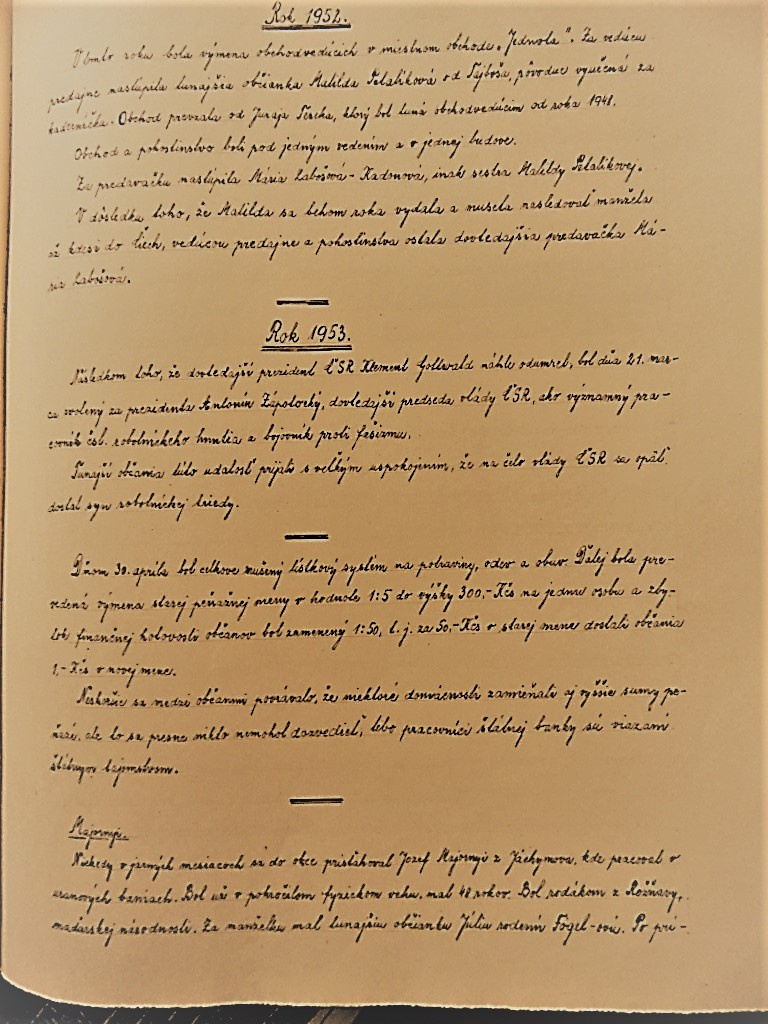 Rok 1952.
V tomto roku bola výmena obchodvedúcich v miestnom obchode „Jednota". Za vedúcu
predajne nastúpila tunajšia občianka Matilda Petaliková od Tajboša, pôvodne vyučená za
kaderníčku. Obchod prevzala od Juraja Tereka, ktorý bol tuná obchodvedúcim od roka 1948.
Obchod a pohostinstvo boli pod jedným vedením a v jednej budove.
Za predavačku nastúpila Mária Labošová-Kadonová, inak sestra Matildy Petalikovej.
V dôsledku toho, že Matilda sa behom roka vydala a musela nasledovať manžela
až kdesi do Čiech, vedúcou predajne a pohostinstva ostala dovtedajšia predavačka Má-
ria Labošová.
Rok 1953.
Následkom toho, že dovtedajší prezident ČSR Klement Gottwald náhle odumrel, bol dňa 21. mar-
ca zvolený za prezidenta Antonín Zápotocký, dovtedajší predseda vlády ČSR, ako významný pra-
covník čsl. robotníckeho hnutia a bojovník proti fašizmu.
Tunajší občania túto udalosť prijali s veľkým uspokojením, že na čelo vlády ČSR sa opäť
dostal syn robotníckej triedy.
Dňom 30. apríla bol celkove zrušený lístkový systém na potraviny, odev a obuv. Ďalej bola pre-
vedená výmena starej peňažnej meny v hodnote 1:5 do výšky 300,- Kčs na jednu osobu a zby-
tok finančnej hotovosti občanov bol zamenený 1:50, t. j. za 50,- Kčs v starej mene dostali občania
1,- Kčs v novej mene.
Neskoršie sa medzi občanmi povrávalo, že niektoré domácnosti zamieňali aj vyššie sumy pe-
ňazí, ale to sa presne nikto nemohol dozvedieť, lebo pracovníci štátnej banky sú viazaní
štátnym tajomstvom.
Majornyi.
Niekedy v jarných mesiacoch sa do obce prisťahoval Jozef Majornyi z Jáchymova, kde pracoval v
uranových baniach. Bol už v pokročilom fyzickom veku, mal 48 rokov. Bol rodákom z Rožňavy,
maďarskej národnosti. Za manželku mal tunajšiu občianku Júliu rodenú Fógel-ovú. Po prí-